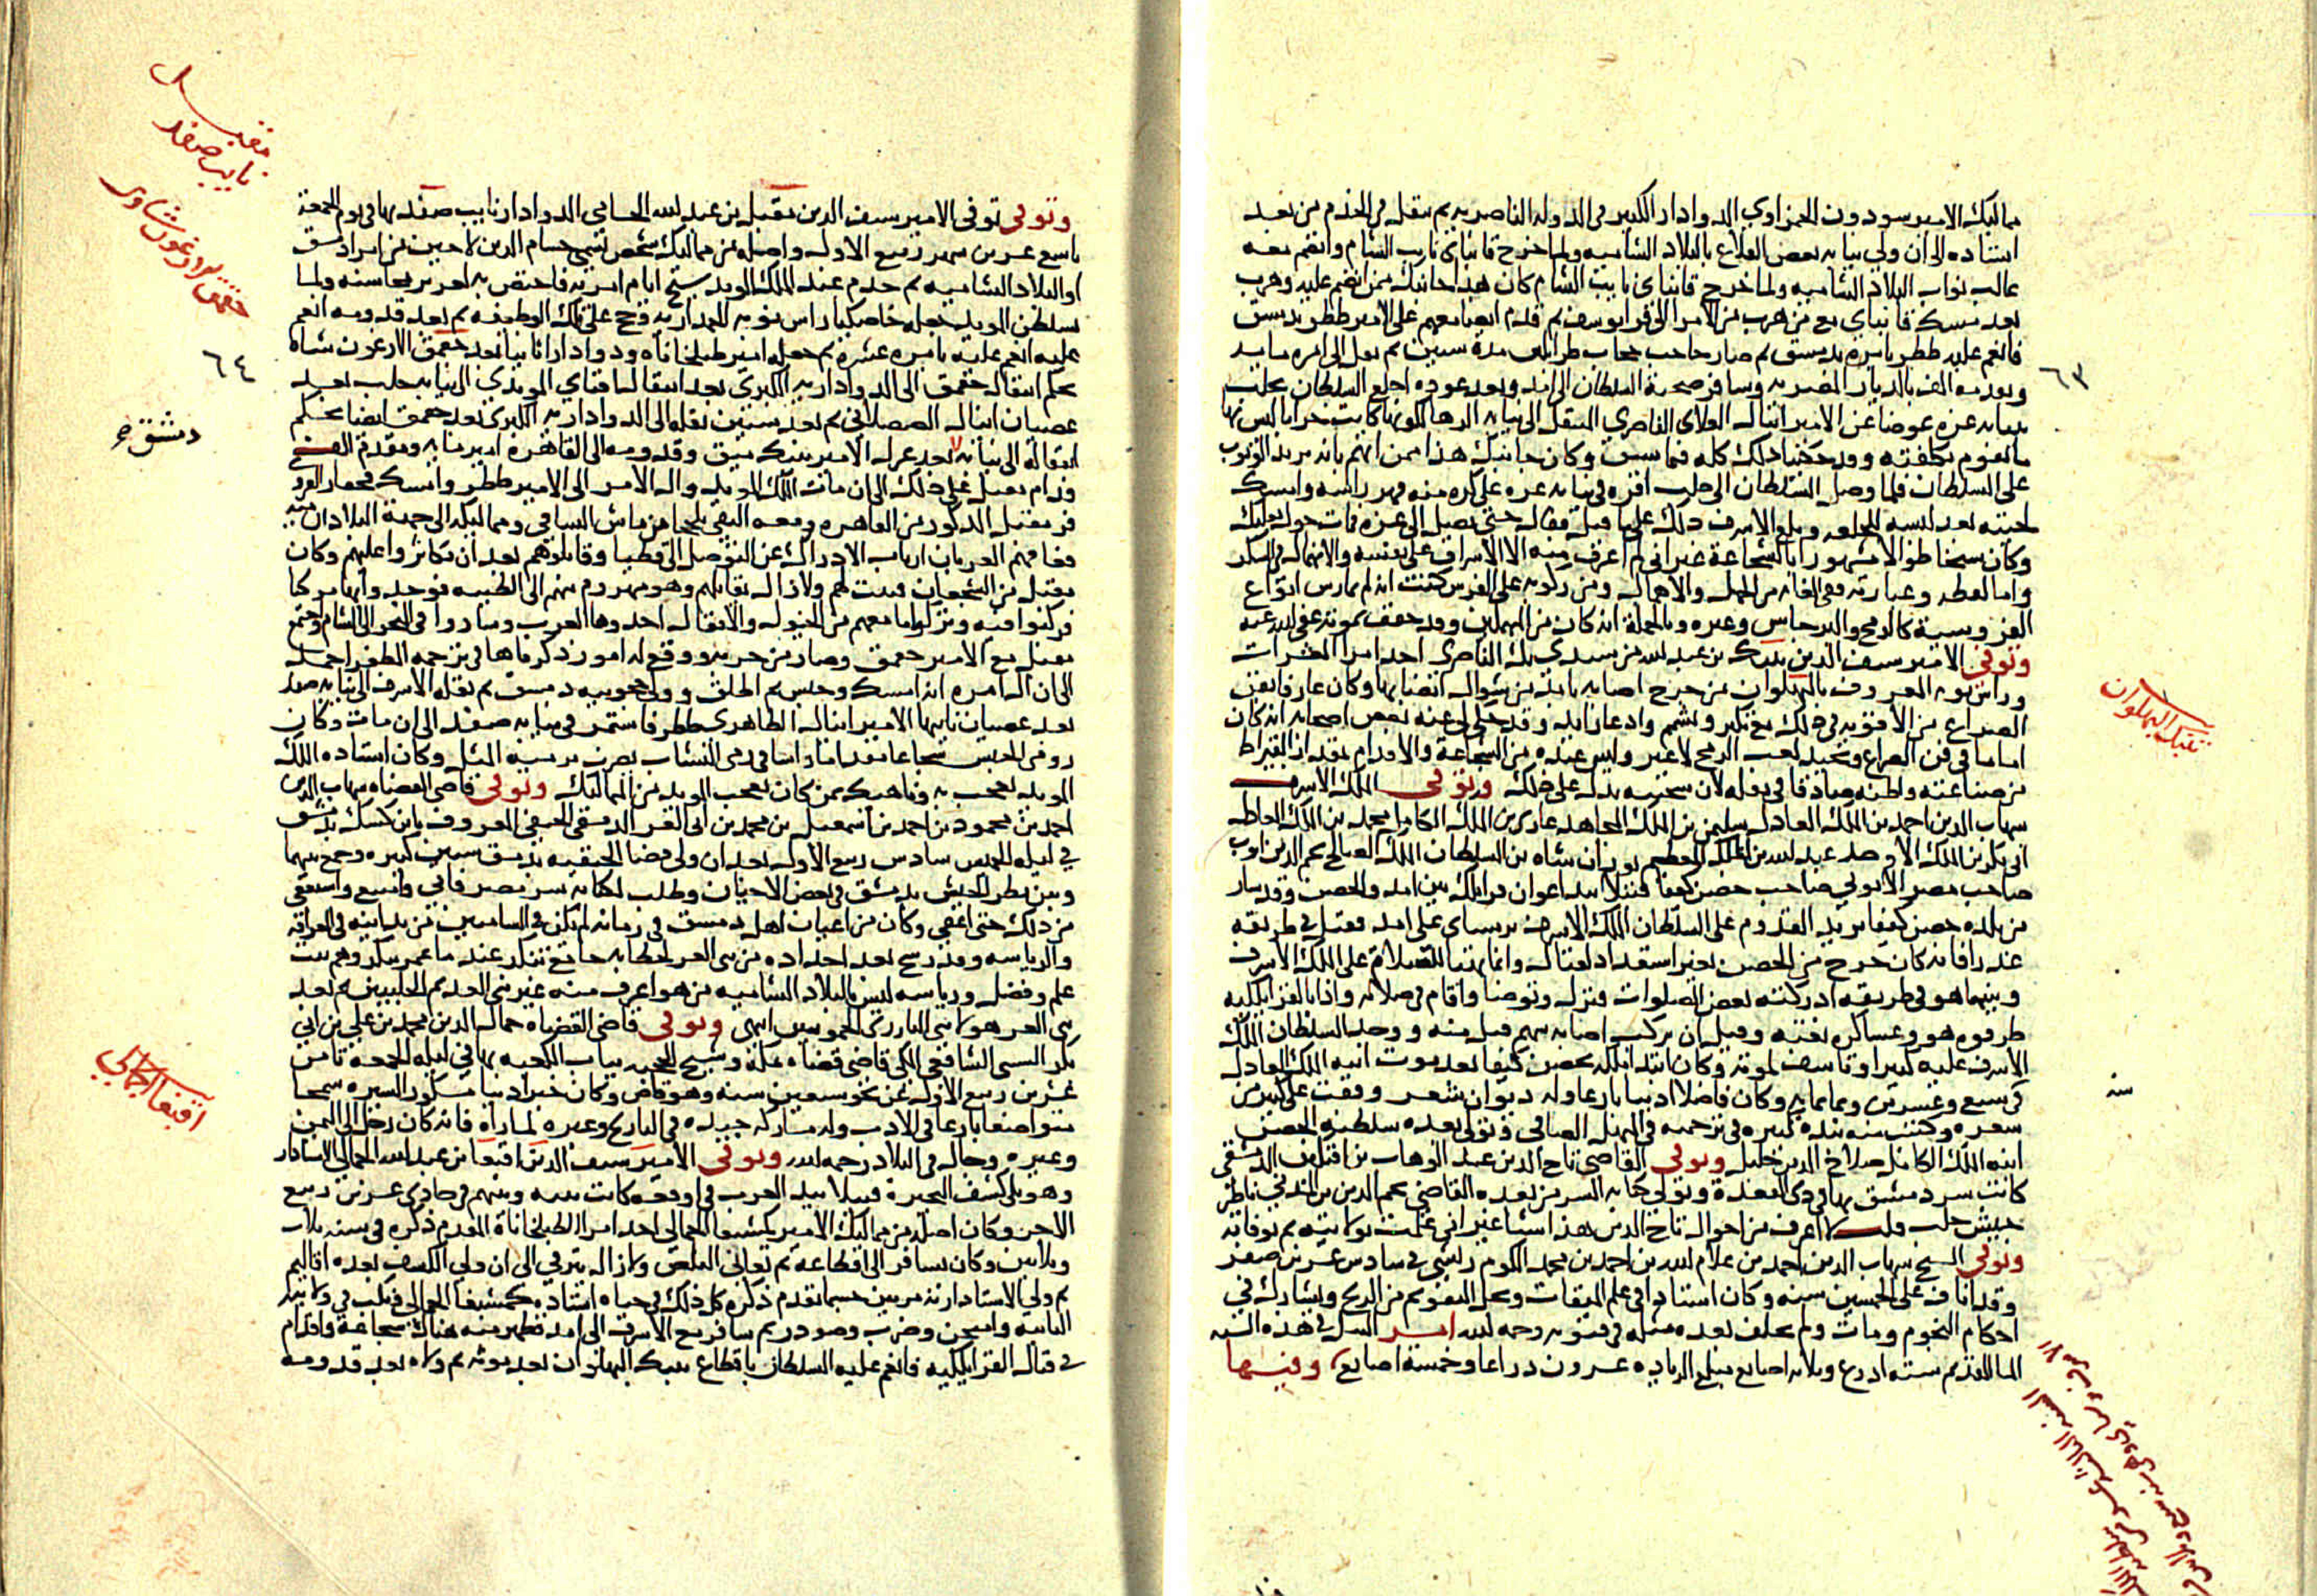 مماليك الامير سودون الحمزاوي الدوادار الكبير في الدولة الناصرية ثم تنقل في الخدم من بعد
استاده الى ان ولي نيابة بعض القلاع بالبلاد الشامية ولما خرج قانباي نايب الشام وانضم معه
غالب نواب البلاد الشامية ولما خرج قانباي نايب الشام كان هذا جانبك ممن انضم عليه وهرب
بعد مسك قانباي مع من هرب من الامرا الى قرا يوسف ثم قدم ايضا معهم على الامير ططر بدمشق
فانعم عليه ططر بامرة بدمشق ثم صار حاجب حجاب طرابلس مدة سنين ثم نقل الى امرة ماية
وتقدمة الف بالديار المصرية وسافر صحبة السلطان الى امد وبعد عوده اخلع السلطان بحلب
بنيابة غزة عوضا عن الامير اينال العلاى الناصري المنتقل الى نيابة الرها لكونها كانت خرابا ليس بها
ما يقوم بكلفته وقد حكينا ذلك كله فيما سبق وكان جانبك هذا ممن اتهم بانه يريد الوثوب
على السلطان فلما وصل السلطان الى حلب اقره في نيابة غزة على كره منه
لحيته بعد لبسه الخلعة وبلغ الاشرف ذلك على ما قيل فقال حتى يصل الى غزة فمات حول بعلبك
وكان شيخا طوالا مشهورا بالشجاعة غير اني لم اعرف منه الا الاسراف على نفسه والانهماك في السكر
واما لفظه وعبارته ففي الغاية من الجهل والاهمال ومن ركوبه على الفرس كنت انه لم يمارس انواع
الفروسية كالرمح والبرجاس وغيره وبالجملة انه كان من المهملين وقد خفف بموته عفى الله عنه
وتوفي الامير سيف الدين تنبك بن عبد الله من سيدي بك الناصري احد امرا العشرات
وراس نوبة المعروف بالبهلوان من جرح اصابه بامد من شوال ايضا بها وكان عارفا بفن
الصراع من الاقوية في ذلك مع تكبر وشمم وادعا زايد وقد حكى لي عنه بعض اصحابه انه كان
اماما في فن الصراع ويجيد لعب الرمح لا غير وليس عنده من الشجاعة والاقدام بقدر القيراط
من صناعته واظنه صادقا في نقله لان سحنته تدل على ذلك وتوفي الملك الاشرف
شهاب الدين احمد بن الملك العادل سليمن بن الملك المجاهد غازي بن الملك الكامل محمد بن الملك العادل
ابي بكر بن الملك الاوحد عبد الله بن الملك المعظم توران شاه بن السلطان الملك الصالح نجم الدين ايوب
صاحب مصر الايوبي صاحب حصن كيفا قتيلا بيد اعوان قرايلك بين امد والحصن وقد سار
من بلده حصن كيفا يريد القدوم على السلطان الملك الاشرف برسباي على امد فقتل في طريقه
غدرا فانه كان خرج من الحصن بغير استعداد لقتال وانما تهيا للسلام على الملك الاشرف
وبينما هو في طريقه ادركته بعض الصلوات فنزل وتوضا واقام في صلاته واذا بالقرايلكية
طرقوه هو وعساكره بغتة وقبل ان يركب اصابه سهم قتل منه ووجد السلطان الملك
الاشرف عليه كثيرا وتاسف لموته وكان ابتدا ملكه بحصن كيفا بعد موت ابيه الملك العادل
في سبع وعشرين وثمانماية وكان فاضلا اديبا بارعا وله ديوان شعر وقفت على كثير من
شعره وكتبت منه نبذة كبيرة في ترجمته في المنهل الصافي وتولى بعده سلطنة الحصن
ابنه الملك الكامل صلاح الدين خليل وتوفي القاضي تاج الدين عبد الوهاب بن افتكين الدمشقي
كاتب سر دمشق بها في ذي القعدة وتولى كتابة السر من بعده القاضي نجم الدين بن المدني ناظر
جيش حلب قلت لا اعرف من احوال تاج الدين هذا شيا غير اني علمت بولايته ثم بوفاته
وتوفي الشيخ شهاب الدين احمد بن غلام الله بن احمد بن محمد الكوم ريشي في سادس عشرين صفر
وقد اناف على الخمسين سنة وكان استاذا في علم الميقات وحل التقويم من الزيج ويشارك في
احكام النجوم ومات ولم يخلف بعده مثله في فنونه رحمه الله امر النيل في هذه السنة
الما القديم ستة ادرع وثلاثة اصابع مبلغ الزيادة عشرون دراعا وخمسة اصابع وفيها
٦٣
تنبك البهلوان
سنة
وتوفي توفي الامير سيف الدين مقبل بن عبد الله الحسامي الدوادار نايب صفد بها في يوم الجمعة
تاسع عشرين شهر ربيع الاول واصله من مماليك شخص يسمى حسام الدين لاجين من امرا دمشق
او البلاد الشامية ثم خدم عند الملك المويد شيخ ايام امرته فاختص به لغزير محاسنه ولما
تسلطن المويد جعله خاصكيا راس نوبة الجمدارية وحج على تلك الوظيفة ثم بعد قدومه انعم
عليه انعم عليه بامرة عشرة ثم جعله امير طبلخاناه ودوادارا ثانيا بعد جقمق الارغون شاه
بحكم انتقال جقمق الى الدوادارية الكبرى بعد انتقال اقباي المويدي الى نيابة حلب بعد
عصيان اينال الصصلاني ثم بعد سنين نقله الى الدوادارية الكبرى بعد جقمق ايضا بحكم
انتقاله الى نيابة بعد عزل الامير تنبك ميق وقدومه الى القاهرة امير ماية ومقدم الف
ودام مقبل على ذلك الى ان مات الملك المويد وال الامر الى الامير ططر وامسك قجقار القردمي
فر مقبل المذكور من القاهرة ومعه السيفي يلخجا من مامش الساقي ومماليكه الى جهة البلاد
فعاقهم العربان ارباب الادراك عن التوصل الى قطيا وقاتلوهم بعد ان تكاثروا عليهم وكان
مقبل من الشجعان فثبت لهم ولا زال يقاتلهم وهو مهزوم منهم الى الطينة فوجد وابها مركبا
فركبوا فيه وتركوا ما معهم من الخيول والاثقال اخذوها العرب وساروا في البحر الى الشام واجتمع
مقبل مع الامير جقمق وصار من حزبه ووقع له امور ذكرناها في ترجمة المظفر احمد
الى ان ال امره انه امسك وحبس ثم اطلق وولي حجوبية دمشق ثم نقله الاشرف الى نيابة صفد
بعد عصيان نايبها الامير اينال الظاهري ططر فاستمر في نيابة صفد الى ان مات وكان
رومي الجنس شجاعا مقداما راسا في رمي النشاب يضرب برميه المثل وكان استاده الملك
المويد يعجب به وناهيك بمن كان يعجب المويد من المماليك وتوفي قاضي القضاه شهاب الدين
احمد بن محمود بن احمد بن اسمعيل بن محمد بن ابي العز الدمشقي الحنفي المعروف بابن كشك بدمشق
في ليلة الخميس سادس ربيع الاول بعد ان ولي قضا الحنفية بدمشق سنين كثيرة وجمع بينها
وبين نظر الجيش بدمشق في بعض الاحيان وطلب لكتابة سر مصر فابى وامتنع واستعفى
من ذلك حتى اعفي وكان من اعيان اهل دمشق في زمانه لم يكن في الشاميين من يدانيه في العراقة
والرياسة
علم وفضل ورياسة ليس بالبلاد الشامية من هو اعرف منه غير بني العديم الحلبيين ثم بعد
بني العز هولا بني البارزي الحمويين انتهى وتوفي قاضي القضاه جمال الدين محمد بن علي بن ابي
بكر الشيبي الشافعي المكي قاضي قضاة مكة وشيخ الحجبة بباب الكعبة بها في ليلة الجمعة ثامن
عشرين ربيع الاول عن نحو سبعين سنة وهو قاض وكان خيرا دينا مشكور السيرة سمحا
متواضعا بارعا في الادب وله مشاركة جيدة في التاريخ وغيره لما راه فانه كان رحل الى اليمن
وغيره وجال في البلاد رحمه الله وتوفي الامير سيف الدين اقبغا بن عبد الله الجمالي الاستادار
وهو يلي كشف البحيرة قتيلا بيد العرب في واقعة كانت بينه وبينهم في حادي عشرين ربيع
الاخر وكان اصله من مماليك الامير كمشبغا الجمالي احد امرا الطبلخاناة المقدم ذكره في سنة ثلاث
وثلاثين وكان يسافر الى اقطاعه ثم تعانى البلص ولا زال يترقى الى ان ولي الكشف بعدة اقاليم
ثم ولي الاستادارية مرتين حسبما تقدم ذكره كل ذلك في حياة استاده كمشبغا الجمالي ونكب في ولايته
الثانية وامتحن وضرب وصودر ثم سافر مع الاشرف الى امد فظهر منه هناك شجاعة واقدام
في قتال القرايلكية فانعم عليه السلطان باقطاع تنبك البهلوان بعد موته ثم ولاه بعد قدومه
مقبل
نايب صفد
جقمق الارغون شاوى
٦٤
دمشق صح
اقبغا الجمالي